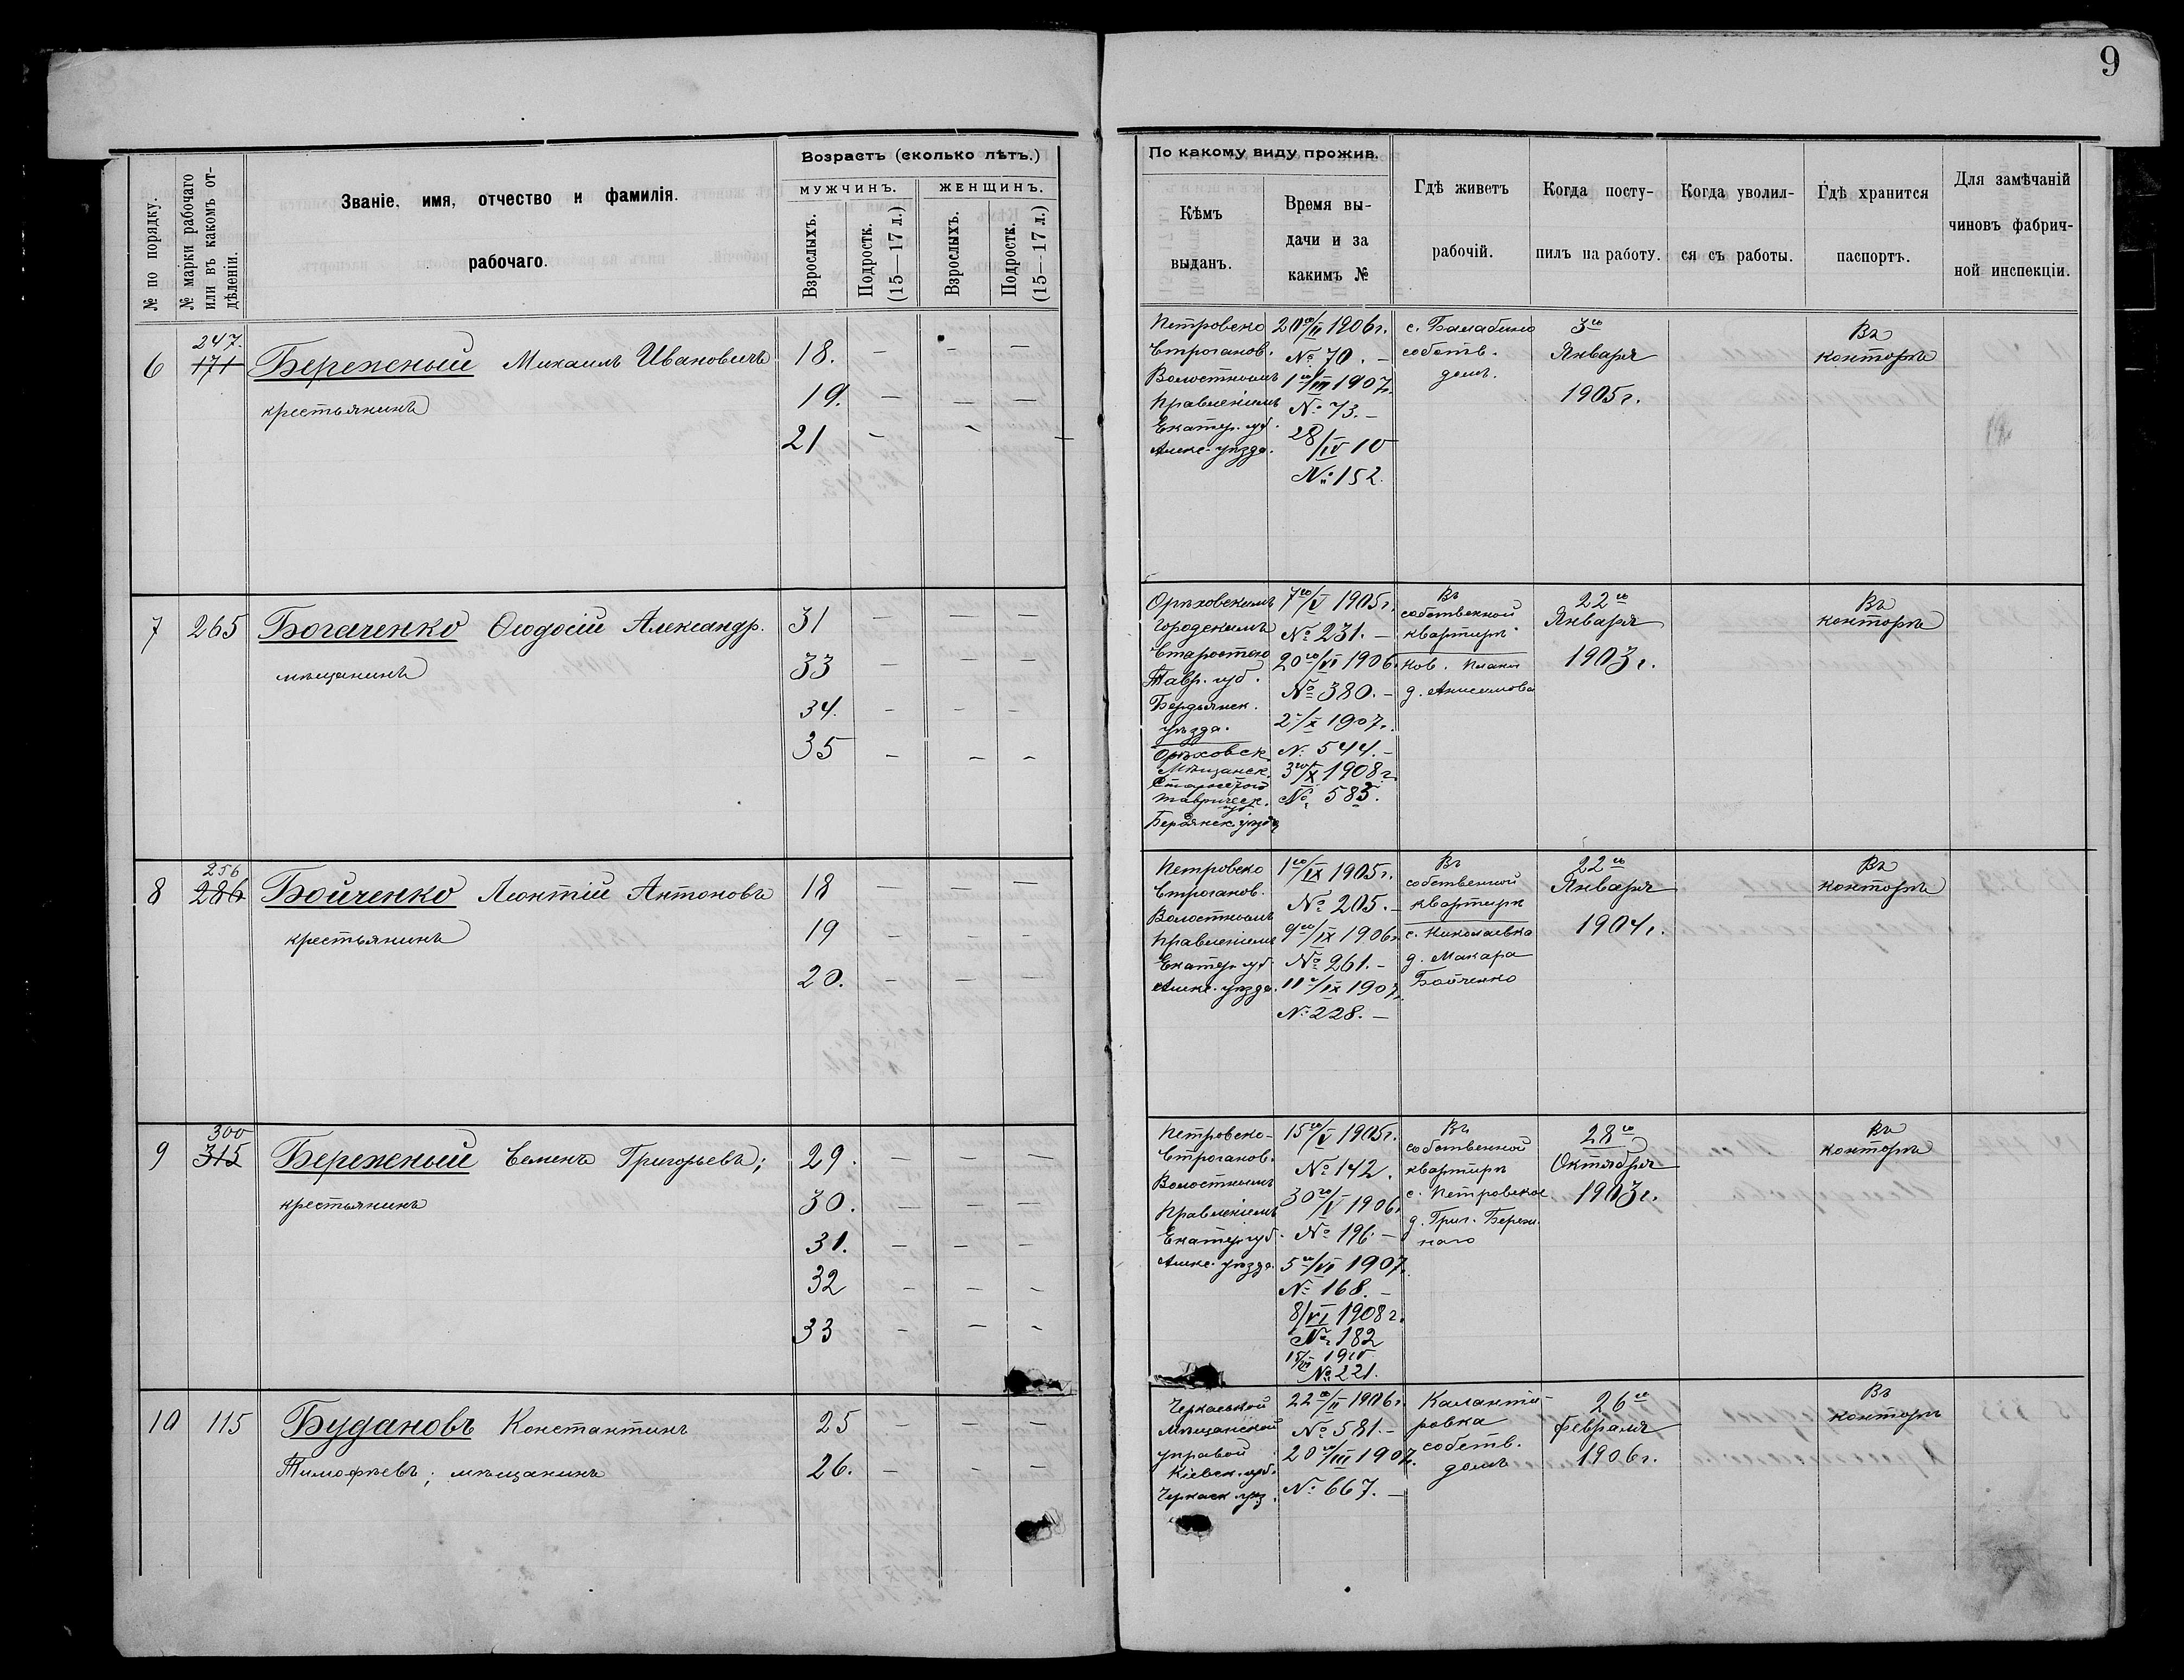 9
№ по порядку.
№ марки рабочаго
или въ какомъ от-
дѣленіи.
Званіе, имя, отчество и фамилія.
рабочаго.
Возрастъ (сколько лѣтъ.)
мужчинъ.
женщинъ.
Взрослыхъ.
Подростк.
(15—17 л.)
Взрослыхъ.
Подростк.
(15—17 л.)
По какому виду прожив.
Кѣмъ
выданъ.
Время вы-
дачи и за
какимъ №
Гдѣ живетъ
рабочій.
Когда посту-
пилъ на работу.
Когда уволил-
ся съ работы.
Гдѣ хранится
паспортъ.
Для замѣчаній
чиновъ фабрич-
ной инспекціи.
6
247.
171
Бережный Михаилъ Ивановичъ
крестьянинъ
18. — — —
19. — — —
21 — —
Петровско
Строганов.
Волостнымъ
Правленіемъ
Екатер. губ.
Алекс. уѣзда.
20го/II 1906г.
№ 70. —
1го/III 1907г.
№ 73. —
28/IV 10
№ 152.
с. Балабино
собств.
домъ.
3го
Января
1905г.
Въ
конторѣ
7
265
Богаченко Ѳеодосій Александр.
мѣщанинъ
31 — — —
33 — — —
34. — — —
35 — — —
Орѣховскимъ
Городскимъ
Старостою
Тавр. губ.
Бердянск.
уѣзда.
Орѣховск.
Мѣщанск.
Старостой
Таврическ.
губ
Бердянск. уѣзд
7го/V 1905г.
№ 231. —
20го/VI 1906.
№ 380. —
2/X 1907г.
№ 544. —
3го/X 1908г.
№ 583.
Въ
собственной
квартирѣ
Ков. Планы
д. Анисимова
22го
Января
1903г.
Въ
конторѣ
8
256
286
Бойченко Леонтій Антоновъ
крестьянинъ
18 — — —
19 — — —
20. — — —
Петровско
Строганов.
Волостнымъ
Правленіемъ
Екатер. губ.
Алекс. уѣзда.
1го/IX 1905г.
№ 205. —
9го/IX 1906г.
№ 261. —
11го/IX 1907.
№ 228. —
Въ
собственной
квартирѣ
с. Николаевка
д. Макара
Бойченко
22го
Января
1904г.
Въ
конторѣ
9
300
315
Бережный Семенъ Григорьевъ;
крестьянинъ
29. — — —
30. — — —
31. — — —
32 — — —
33 — — —
Петровско-
Строганов.
Волостнымъ
Правленіемъ
Екатер. губ.
Алекс. уѣзда.
15го/V 1905г.
№ 142.
30го/V 1906г
№ 196 —
5го/VI 1907.
№ 168. —
8/VI 1908г.
№ 182
1910
№ 221.
Въ
собственной
квартирѣ
с. Петровское
д. Григ. Береж
наго
28го
Октября
1903г.
Въ
конторѣ
10
115
Будановъ Константинъ
Тимофѣевъ; мѣщанинъ
25 — — —
26. — — —
Черкасской
Мѣщанской
управой
Кіевск. губ.
Черкаск. уѣз.
22го/II 1906г.
№ 581. —
20го/III 1907.
№ 667. —
Калантѣ-
ровка
собств.
домъ
26го
февраля
1906г.
Въ
конторѣ